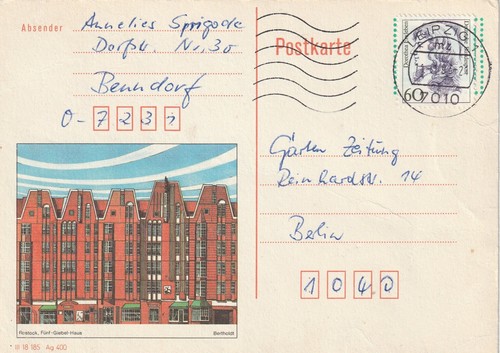 Absender
Annelies Sprigode
Dorfstr. Nr. 30
Benndorf
O-7231
Postkarte
LEIPZIG
7010
60
Garten Zeitung
Reinhardtstr. 14
Berlin
1040
Rostock, Fünf-Giebel-Haus
Bertholdt
III 18 185 Ag 400